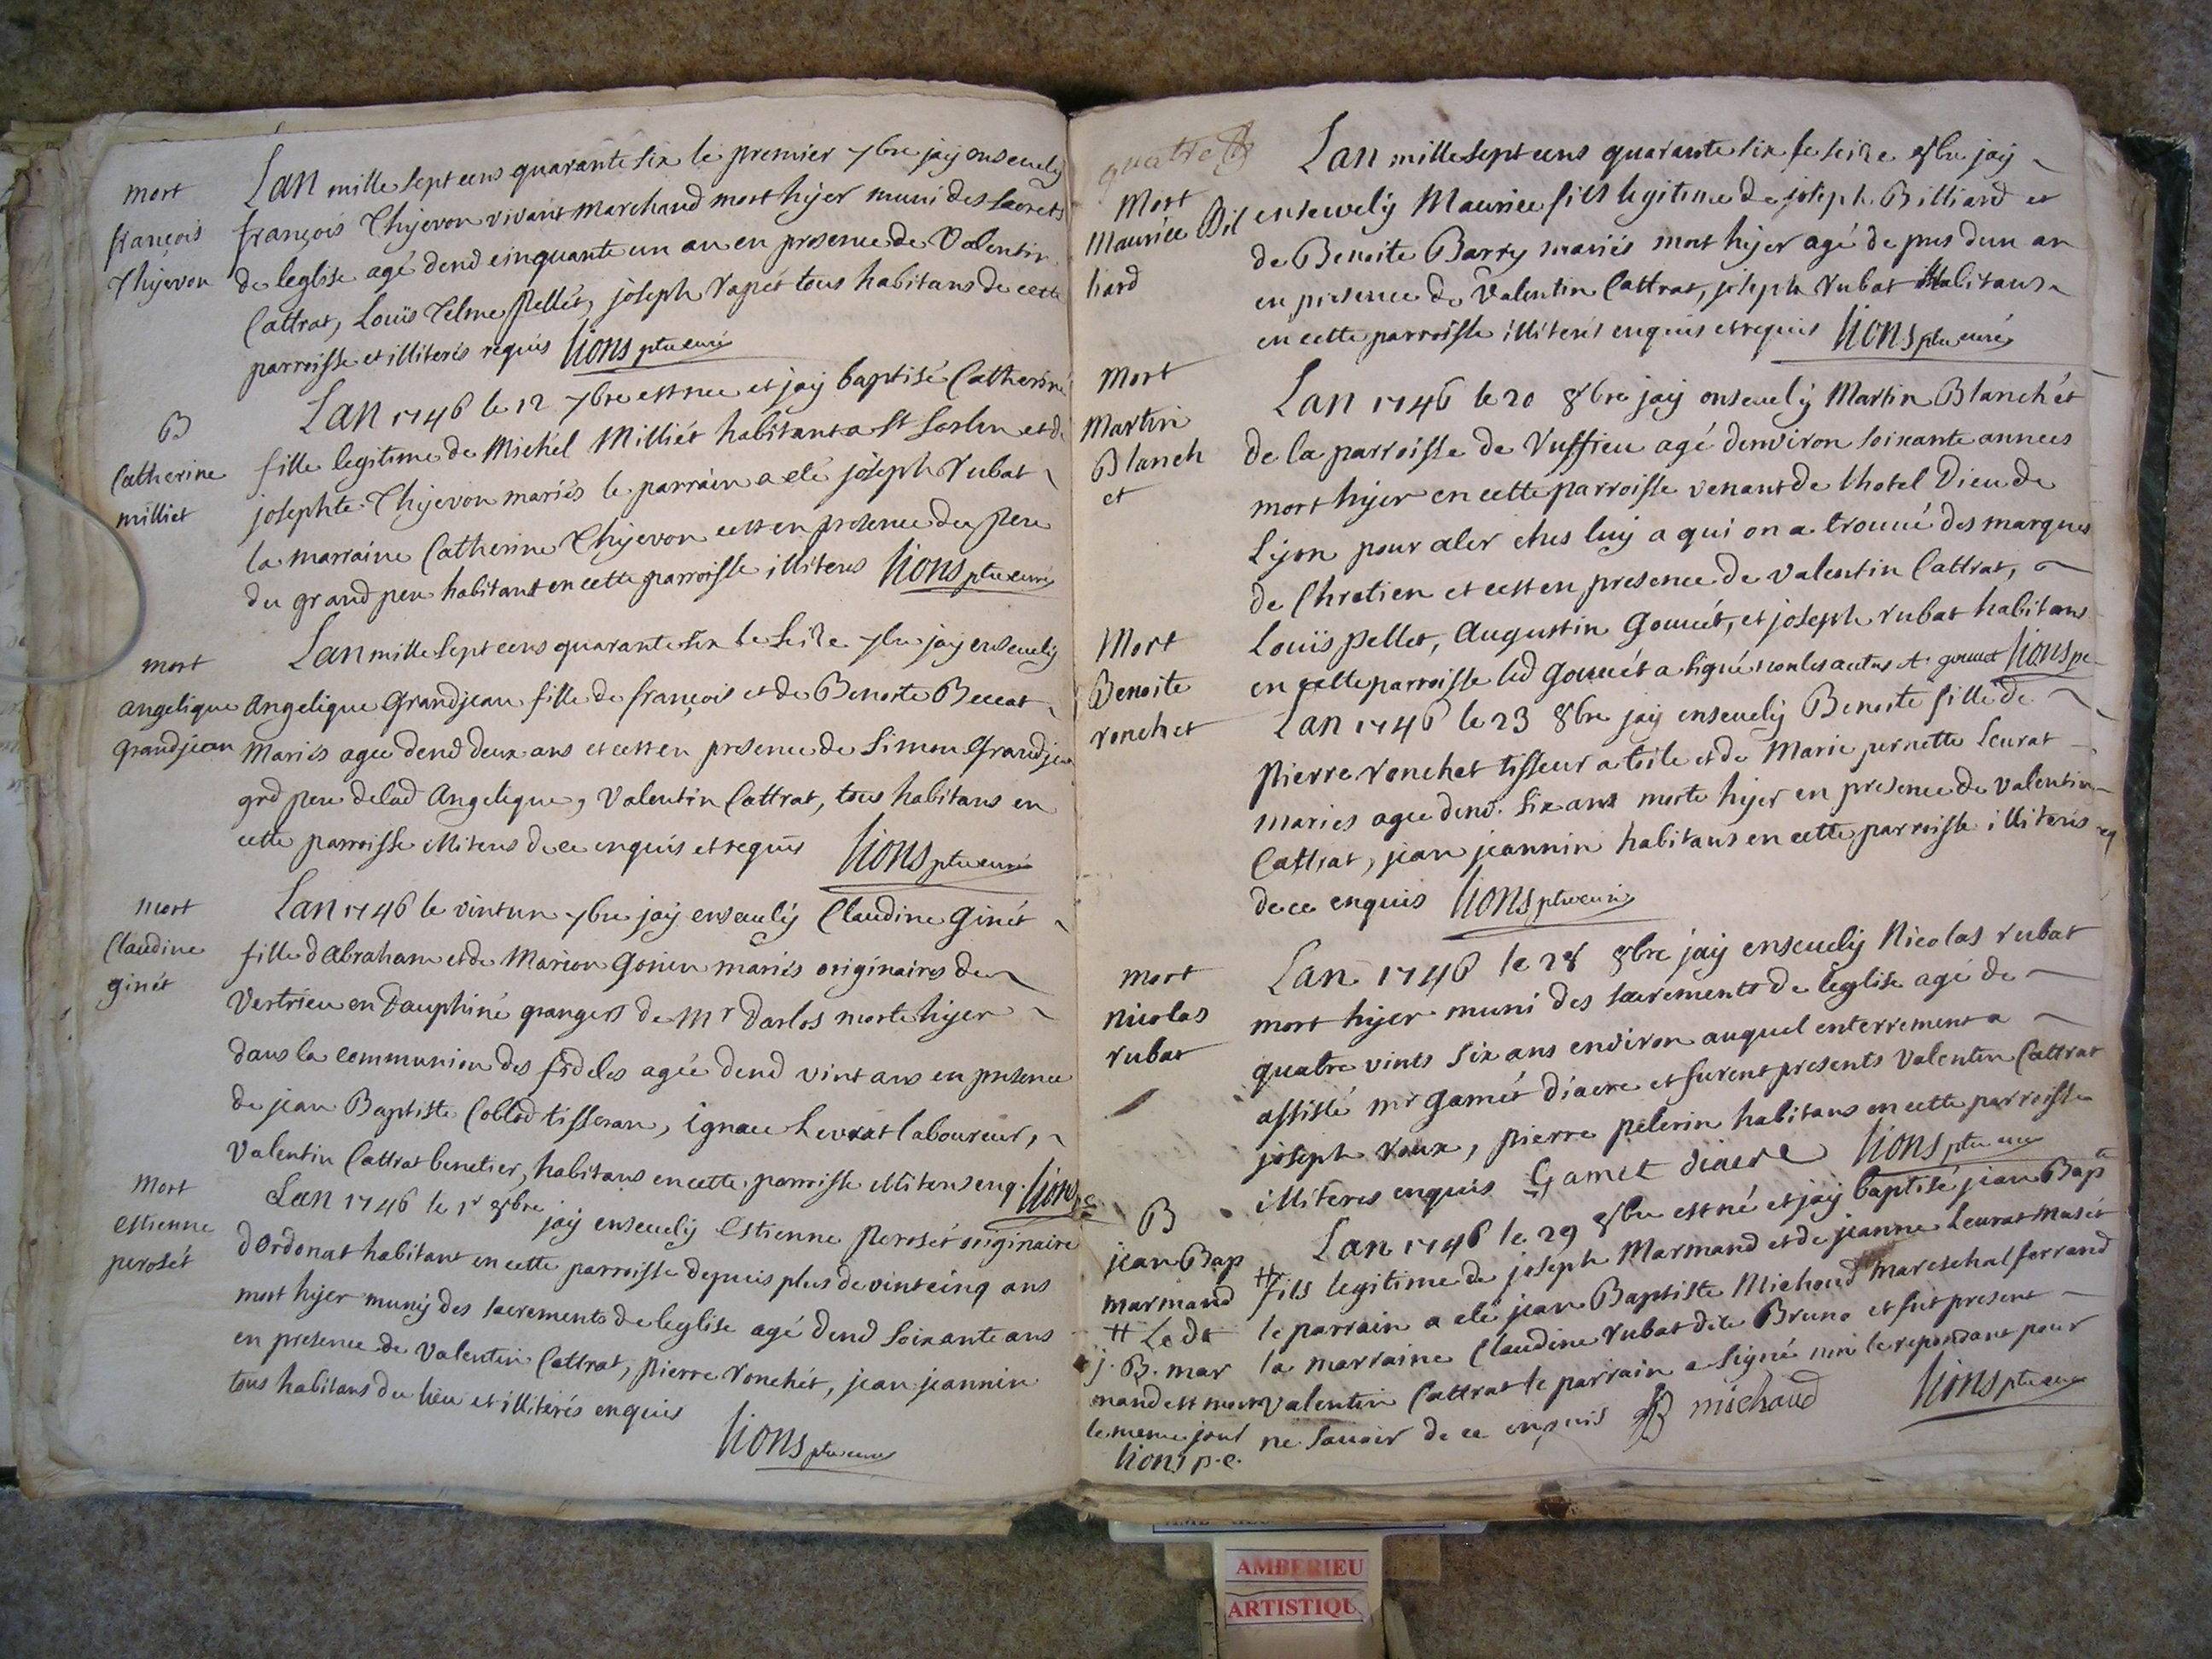 mort
françois
Thyevon
Lan mille sept cens quarante six le premier 7bre jaÿ ensevely
françois Thyevon vivant marchand mort hyer muni des sacrets
de leglise agé denv cinquante un an en presence de Valentin
Cattrat, Louïs Telme Pellét, joseph Vapét tous habitans de cette
parroisse et illiterés requis Lions ptre curé
B
Catherine
milliet
Lan 1746 le 12 7bre est nee et jaÿ baptisé Catherine
fille legitime de Michél Milliét habitant a St Sorlin et de
josephte Thyevon mariés le parrain a eté joseph Rubat
la marraine Catherine Thyevon cest en presence du pere
du grand pere habitant en cette parroisse illiteres Lions ptre curé
mort
angelique
grandjean
Lan mille sept cens quarante six le seize 7bre jaÿ ensevely
Angelique Grandjean fille de françois et de Benoite Beccat
Mariés agee denv deux ans et cest en presence de Simon Grandjean
grd pere de lad Angelique, Valentin Cattrat, tous habitans en
cette parroisse illiteres de ce enquis et requis Lions ptre curé
mort
Claudine
ginét
Lan 1746 le vint un 7bre jaÿ ensevely Claudine Ginét
fille dAbraham et de Marion Gonin mariés originaires de
Vertrieu en Dauphiné grangers de Mr Darlos morte hyer
dans la communion des fideles agée denv vint ans en presence
de jean Baptiste Coblod tisseran, Ignace Levrat laboureur,
Valentin Cattrat benetier, habitans en cette parroisse illiteres enq. Lions p c
Mort
estienne
perosét
Lan 1746 le 1r 8bre jaÿ ensevely Estienne Perosét originaire
dOrdonat habitant en cette parroisse depuis plus de vint cinq ans
mort hyer muny des sacrements de leglise agé denv soixante ans
en presence de Valentin Cattrat, pierre Ronchét, jean jeannin
tous habitans du lieu et illiterés enquis
Lions ptre curé
quatre
Mort
Maurice Bil
liard
Lan mille sept cens quarante six le seize 8bre jaÿ
ensevely Maurice fils legitime de joseph Billiard et
de Benoite Barry mariés mort hyer agé de pres dun an
en presence de Valentin Cattrat, joseph Rubat habitans
en cette parroisse illiterés enquis et requis Lions ptre curé
Mort
Martin
Blanch
et
Lan 1746 le 20 8bre jaÿ ensevely Martin Blanchét
de la parroisse de Vuffieu agé denviron soixante annees
mort hyer en cette parroisse venant de lhotel Dieu de
Lyon pour aler ches luy a qui on a trouvé des marques
de Chretien et cest en presence de Valentin Cattrat,
Louïs Pellet, Augustin Gouuét, et joseph Rubat habitans
en cette parroisse led Gouuét a signé non les autres A. gouuet Lions p c
Mort
Benoite
ronchet
Lan 1746 le 23 8bre jaÿ ensevely Benoite fille de
Pierre Ronchet tisseur a toile et de Marie pernette Leurat
mariés agee denv. six ans morte hyer en presence de Valentin
Cattrat, jean jeannin habitans en cette parroisse illiterés req
de ce enquis Lions ptre curé
mort
nicolas
rubat
Lan 1746 le 28 8bre jaÿ ensevely Nicolas rubat
mort hyer muni des sacrements de leglise agé de
quatre vints six ans environ auquel enterrement a
assisté mr gamét diacre et furent presents Valentin Cattrat
joseph Roux, pierre pelerin habitans en cette parroisse
illiteres enquis Gamet diacre Lions ptre curé
B
jean Bap
marmand
# Le dt
j. B. mar
mand est mort
le meme jour
Lions p. c.
Lan 1746 le 29 8bre est né et jaÿ baptisé jean Bapte
# fils legitime de joseph Marmand et de jeanne Leurat Musét
le parrain a eté jean Baptiste Michoud mareschal ferrand
la marraine Claudine Rubat dite Bruno et fut present
Valentin Cattrat le parrain a signé non le repondant pour
ne savoir de ce enquis JB michaud Lions ptre curé
AMBERIEU
ARTISTIQU